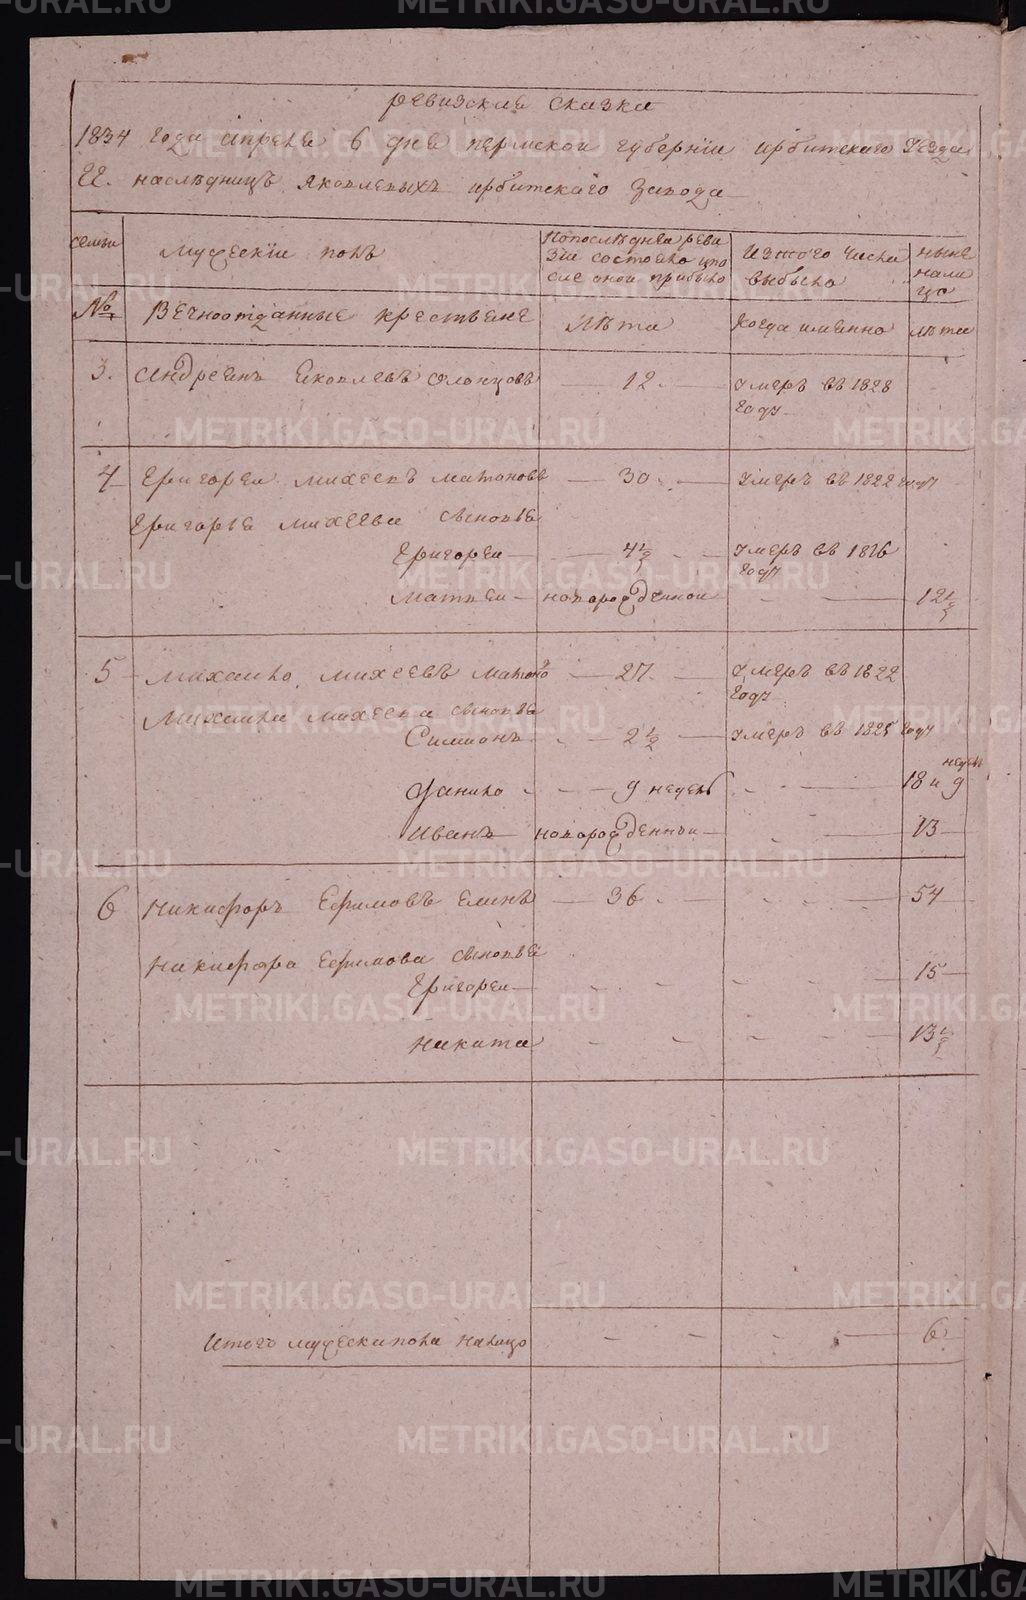 ревизская сказка
1834 года апреля 6 дня пермской губернiи ирбитскаго уезда
ГГ. наслѣдницъ яковлевыхъ ирбитскаго завода
семьи
мужескiи полъ
Попослѣдней реви
зiи состояло ипо
сле оной прибыло
Изтого числа
выбыло
ныне
нали
цо
№
Вечноотданные крестьяне
лѣта
когда имянно
лѣта
3. Андреянъ Яковлевъ 12. умеръ въ 1828
году
4 Григореи михеевъ матоновъ 30. умеръ въ 1822 году
Григорья михеева сыновья
Григореи 4½ умеръ въ 1816
году
Матвеи новорожденнои 12½
5 михаило михеевъ матоно 27. умеръ въ 1822
году
Михаила михеева сыновья
Симионъ 2½ умеръ въ 1825 году
недел
Данило 9 недель 18 и 9
Иванъ новорожденнои 13
6 Никифоръ Ефимовъ елинъ 36. 54
Никифора Ефимова сыновья
Григореи 15
Никита 13½
Итого мужеска пола налицо 6
METRIKI.GASO-URAL.RU